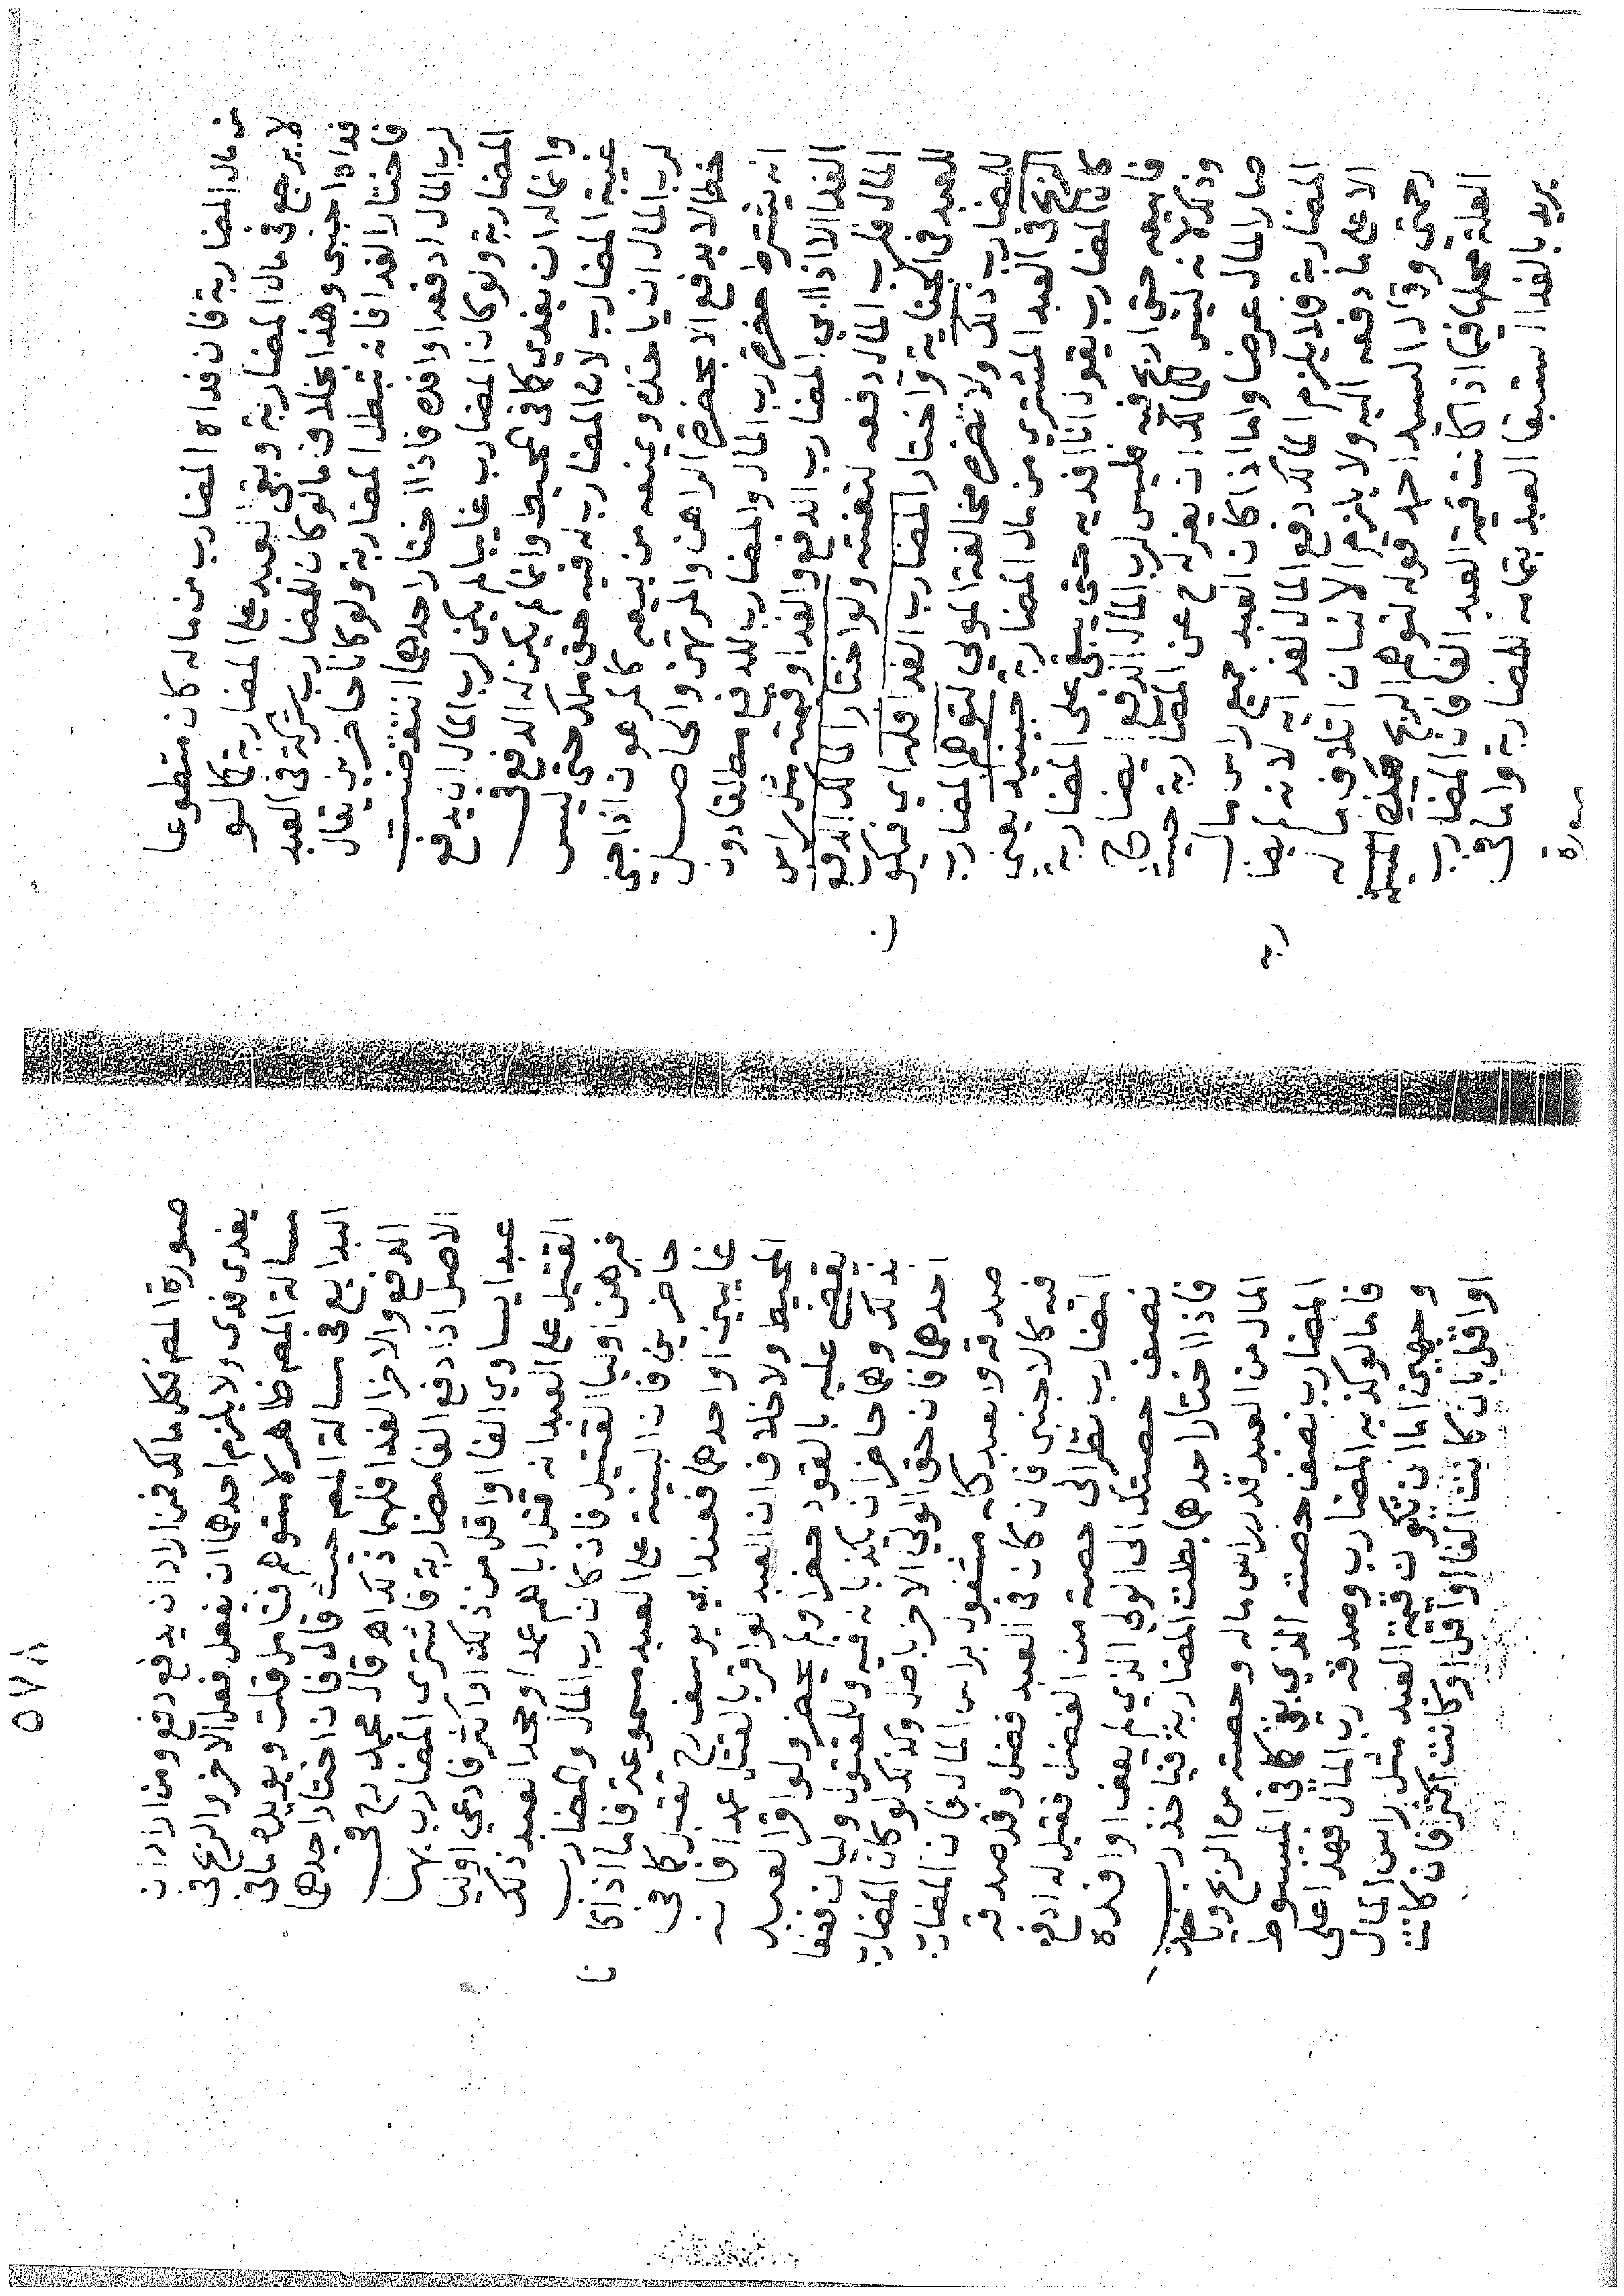 من مال المضاربة فان فداه المضارب من ماله كان متطوعا
لا يرجع في مال المضاربة ويبقى العبد على المضاربة كما لو
فداه اجنبي وهذا بخلاف ما لو كان للمضارب شركة في العبد
فاختار الفدا فانه تبطل المضاربة ولو كانا حاضرين يقال
لرب المال ادفعه او افده فاذا اختار احدهما انتقضت
المضاربة ولو كان المضارب غايبا لم يكن لرب المال ان يدفع
وانما له ان يفدي كما في المحيط وانما لم يكن له الدفع في
غيبة المضارب لان المضارب له فيه حق ملك حتى ليس
لرب المال ان ياخذه ويمنعه من بيعه كالمرهون اذا جنى
خطا لا يدفع الا بحضرة الراهن والمرتهن والحاصل
انه يشترط حضرة رب المال والمضارب للدفع مطلقا دون
الفدا الا اذا ابى المضارب الدفع والفدا وقيمته مثل راس
المال فلرب المال دفعه لتعنته ولو اختار المالك الدفع
للعبد في الجناية واختار المضارب الفدا فله اي فيكون
للمضارب ذلك ولا تضره مخالفة المولى لتوهم المضارب
الربح في العبد المشتري من مال المضاربة حينئذ يعني
كان المضارب يقول انا افديه حتى يبقى على المضاربة
فابيعه حتى اربح فيه فليس لرب المال الدفع ايضاح
وذكر لانه ليس للمالك ان يعزله ح عن المضاربة حيث
صار المال عرضا واما اذا كان العبد جميع راس مال
المضاربة فلا يلزم المالك دفع المال لفدائه لانه ايضا
الا على ما دفعه اليه ولا يلزم الانسان اتلاف ماله
رحمتي وقال السيد احمد قوله لتوهم الربح هذه
العلة محلها فيما اذا كانت قيمة العبد الفا فان المضارب
يريد بالفدا استبقا العبد بتمامه للمضاربة واما في
صورة
٥٧٨
صورة المص فكل مالك فمن اراد ان يدفع دفع ومن اراد ان
يفدي فدى ولا يلزم احدهما ان يفعل فعل الاخر والربح في
مسالة المص ظاهر لا متوهم فتامل قلت ويويده ما في
البدايع في مسالة المص حيث قال فان اختار احدهما
الدفع والاخر الفدا فلهما ذلك اهـ قال محمد رح في
الاصل اذا دفع الفا مضاربة فاشترى المضارب بها
عبدا يساوي الفا او اقل من ذلك او اكثر فادعى اوليا
القتيل على العبد انه قتل اباهم عمدا وجحد العبد ذلك
فبرهن اوليا القتيل فان كان رب المال والمضارب
حاضرين فان البينة على العبد مسموعة فاما اذا كانا
غايبين او احدهما فعند ابي يوسف رح تقبل كما في
المحيط ولا خلاف ان العبد لو اقر بالقتل عمدا فانه
يقضى عليه بالقود حضرا او لم يحضر ولو اقر العبد
بذلك وهما حاضران يكذبانه فيه وللمقتول وليان فعفا
احدهما فان حق الولي الاخر باطل وكذلك لو كان المضارب
صدقه والعبد كله مشغول براس المال فان المضارب
فيه كالاجنبي فان كان في العبد فضل وقد صدقه
المضارب نظر الى حصته من الفضل فقيل له ادفع
نصف حصتك الى الولي الذي لم يعف او افده
فاذا اختار احدهما بطلت المضاربة فياخذ رب
المال من العبد قدر راس ماله وحصته من الربح وياخذ
المضارب نصف حصته الذي بقي كما في المبسوط
فاما لو كذبه المضارب وصدقه رب المال فهذا على
وجهين اما ان تكون قيمة العبد مثل راس المال
او اقل بان كانت الفا او اقل او كانت اكثر فان كانت